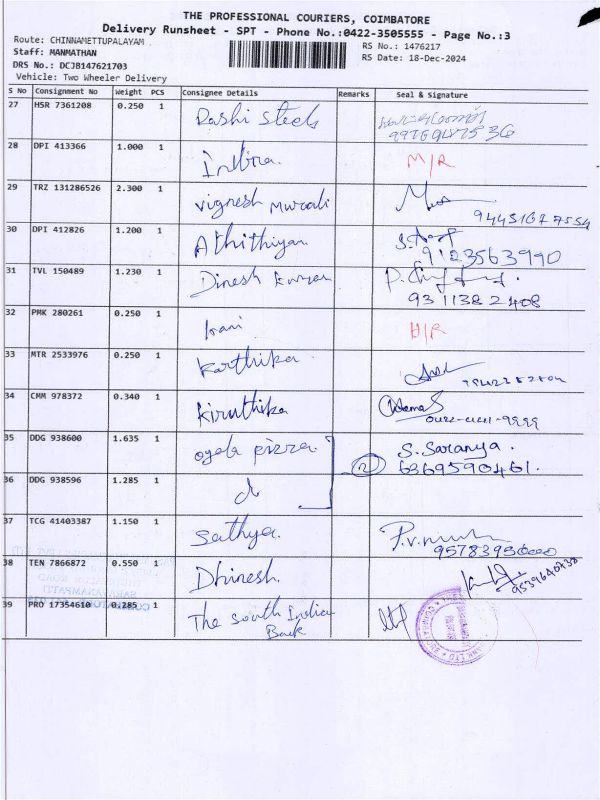 THE PROFESSIONAL COURIERS, COIMBATORE
Delivery Runsheet - SPT - Phone No.:0422-3505555 - Page No.:3
Route: CHINNAMETTUPALAYAM
RS No.: 1476217
Staff: MANMATHAN
RS Date: 18-Dec-2024
DRS No.: DCJB147621703
Vehicle: Two Wheeler Delivery
S No Consignment No Weight PCS Consignee Details Remarks Seal & Signature
27 HSR 7361208 0.250 1 Rashi Steels
28 DPI 413366 1.000 1 Indira.
29 TRZ 131286526 2.300 1 Vignesh Murali
30 DPI 412826 1.200 1 Athithiyan
9123563990
31 TVL 150489 1.230 1 Dinesh kumar
9311382408
32 PMK 280261 0.250 1
33 MTR 2533976 0.250 1 Karthika
34 CMM 978372 0.340 1 Kiruthika
35 DDG 938600 1.635 1 pizza S. Saranya.
6369590461.
36 DDG 938596 1.285 1
37 TCG 41403387 1.150 1 Sathya.
38 TEN 7866872 0.550 1 Dhinesh.
39 PRO 17354610 0.285 1 The South Indian
Bank